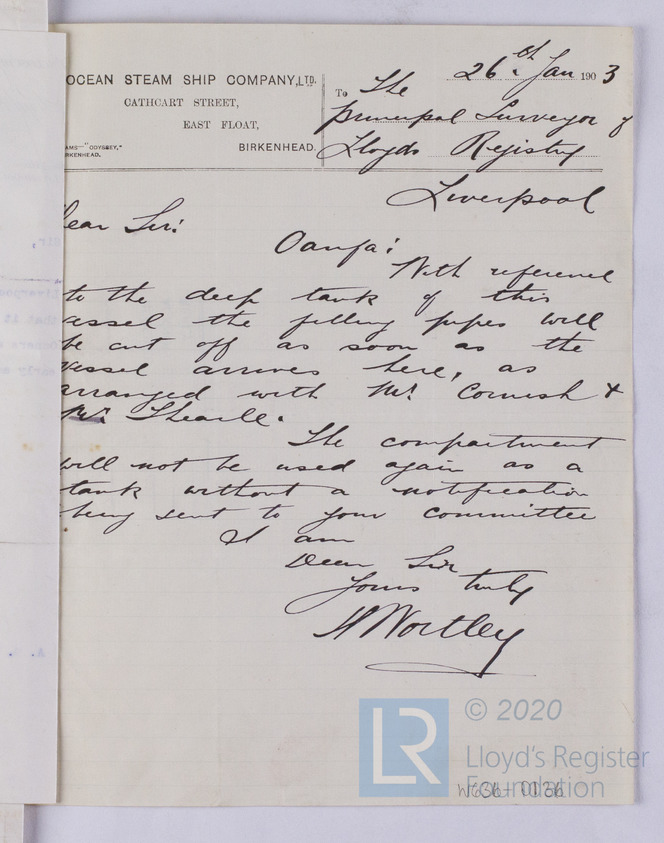 OCEAN STEAM SHIP COMPANY, LTD.
CATHCART STREET,
EAST FLOAT,
BIRKENHEAD.
AMS—"ODYSSEY,"
RKENHEAD.
26th Jan 1903
To The
Principal Surveyor of
Lloyds Registry
Liverpool
ear Sir:
Oanfa:
With reference
to the deep tank of this
essel the filling pipes will
be cut off as soon as the
vessel arrives here, as
arranged with Mr. Cornish &
Mr. Thearle.
The compartment
will not be used again as a
tank without a notification
being sent to your committee
I am
Dear Sir
Yours truly
H Wortley
LR
© 2020
Lloyd's Register
Foundation